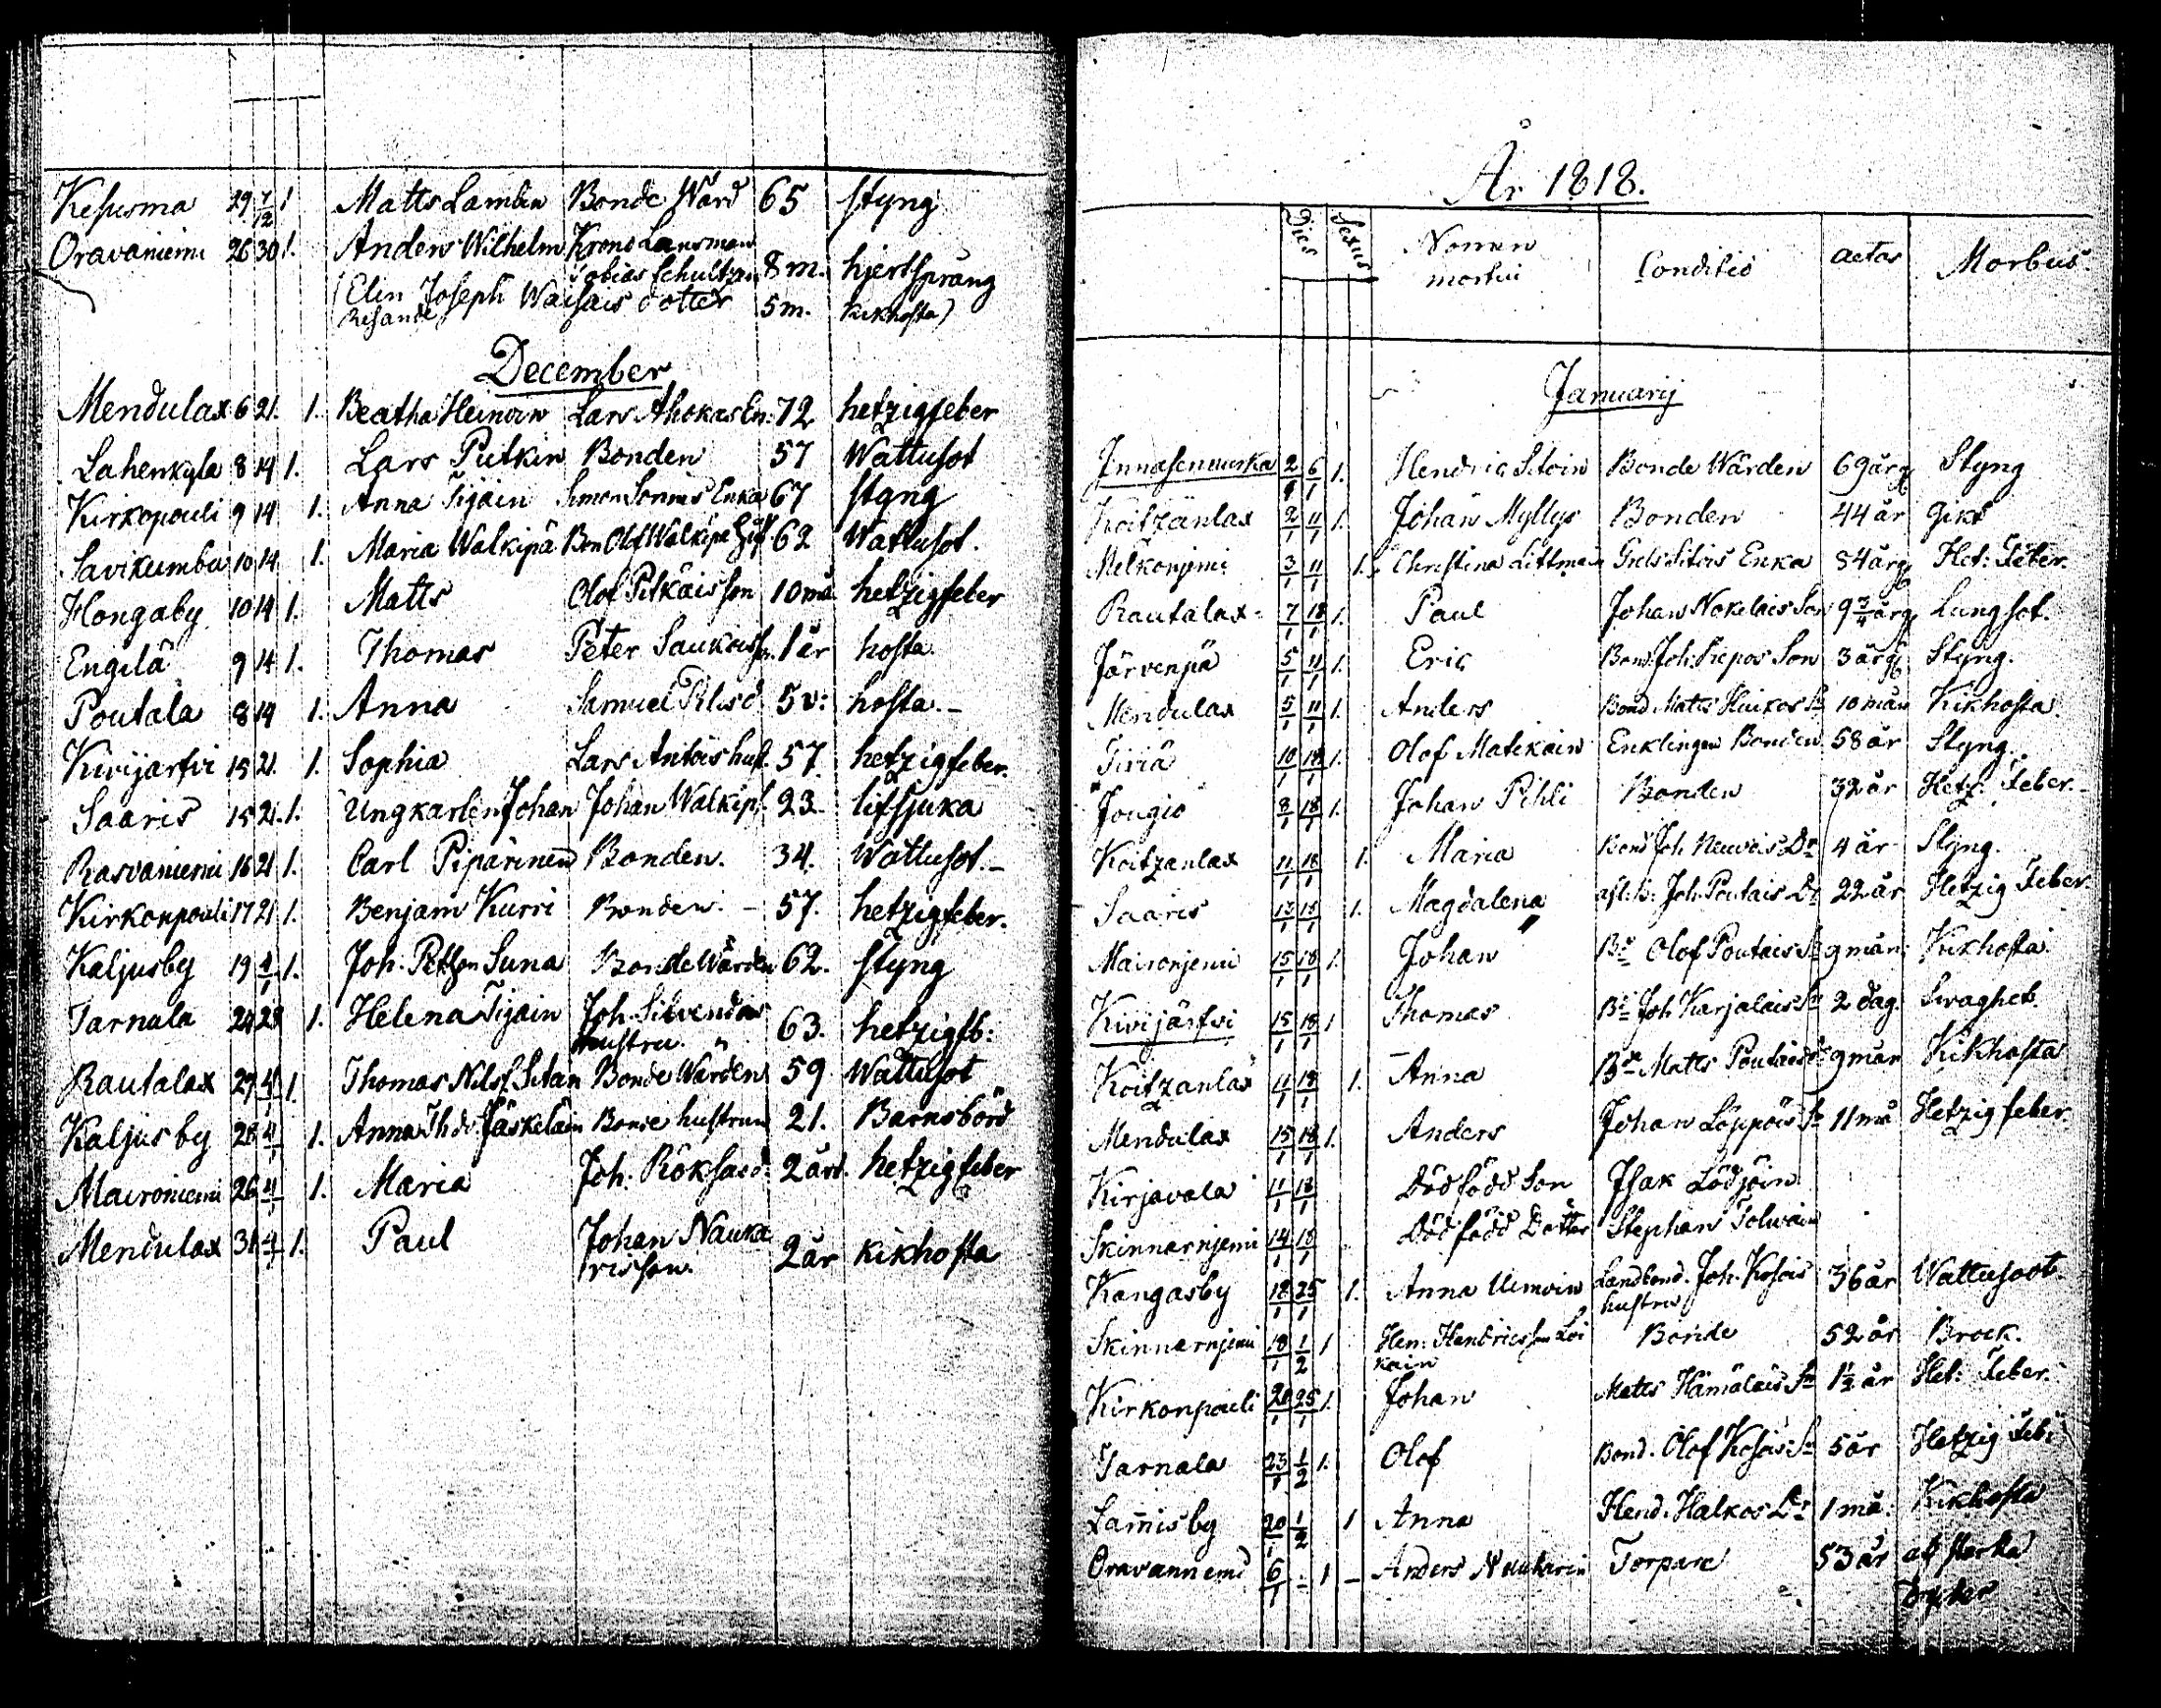 Kesusma 29 7/12 1 Matts Lambin Bonde Värd 65 styng
Oravaniemi 26 30 1. Anders Wilhelm Krono Lansman
Tobias Schultzen 8 m. hjertspräng
(Elin Joseph Waisais dotter 5 m. kikhosta)
Resande
December
Mendulax 6 21. 1. Beatha Heinoin Lars Ahokas En: 72 hetzigfeber
Lahenkyla 8 14 1. Lars Putkin Bonden 57 Wattusot
Kirkopouli 9 14 1. Anna Tijain Simon Sonnis Enka 67 styng
Savikumbu 10 14 1. Maria Walkipä Bon Olof Walkipä Hust 62 Wattusot.
Hongaby 10 14 1. Matts Olof Pitkäis son 10 må hetzigfeber
Engilä 9 14 1. Thomas Peter Saukois sn. 1 år hosta
Poutala 8 14 1. Anna Samuel 5 v: hosta.-
Kivijärfvi 15 21. 1. Sophia Lars Antois hust. 57. hetzigfeber.
Saaris 15 21. 1. Ungkarlen Johan Johan Walkip. 23. lifsjuka
Rasvaniemi 16 21 1. Carl Pipärinen Bonden. 34. Wattusot.-
Kirkonpouli 17 21 1. Benjam Kurri Bonden. - 57. hetzigfeber.
Kaljusby 19 4/1 1. Joh. Petson Suna Bonde Wärden 62. styng
Tarnala 24 28 1. Helena Tijain Joh. Silvendos
hustru. 63. hetzigfb:
Rautalax 27 4/1 1. Thomas Nilss Sitan Bonde Wärden 59 Wattusot
Kaljusby 28 4/1 1. Anna Thdr Jäskeläin Bonde hustrun 21. Barnsbörd
Maironiemi 26 4/1 1. Maria Joh. Röksaisd. 2 årt. hetzigfeber
Mendulax 31 4/1 1. Paul Johan Nauka
risson. 2 år kikhosta
År 1818.
Dies Sexus Nomen
mortui Conditio aetas Morbus
Januarij
Innasenvuska 2/1 6/1 1. Hendric Sitoin Bonde Wärden 69 årg Styng
Koitzanlax 2/1 11/1 1. Johan Myllys Bonden 44 år Gikt
Melkonjemi 3/1 11/1 1. Christina Littman Grels Sitois Enka 84 årg Het: Feber.
Rautalax 7/1 18/1 1. Paul Johan Nokelais Son 9 3/4 årg Lungsot.
Järvenpä 5/1 11/1 1. Eric Bond. Joh: Repos Son 3 årg Styng.
Mendulax 5/1 11/1 1. Anders Bond. Matts Huikos Sn 10 mån Kikhosta.
Tiviä 10/1 18/1 1. Olof Matikain Enklingen Bonden 58 år Styng.
Jougio 8/1 18/1 1. Johan Pihli Bonden 32 år Hetz: Feber.-
Koitzanlax 11/1 18/1 1. Maria Bond Joh Neuvois Dr 4 år Styng.
Saaris 13/1 18/1 1. Magdalena Joh. Poutais Dr 22 år Hetzig Feber.
Maironjemi 15/1 18/1 1. Johan Bn Olof Poutais Sn 9 mån. Kikhosta
Kivijärfvi 15/1 18/1 1 Thomas Bn Joh Karjalais Sn 2 dag. Svaghet.
Koitzanlax 11/1 18/1 1. Anna Bn Matts Poutais dr 9 mån Kikhosta
Mendulax 15/1 18/1 1. Anders Johan Löppöis Sn 11 må Hetzig feber.
Kirjavala 11/1 18/1 Dödfödd Son Isak Lödjöin
Skinnarnjemi 14/1 18/1 Dödfödd Dotter Stephan Tolwain
Kangasby 18/1 25/1 1. Anna Uimoin Landbond. Joh. Kosois
hustru 36 år Wattusoot.
Skinnarnjemi 18/1 1/2 1 Hen: Hendricsson Loi
kain Bonde 52 år Brock.
Kirkonpouli 20/1 25/1 1. Johan Matts Hämäläis Sn 1 1/2 år Het: Feber.
Tarnala 23/1 1/2 1. Olof Bond. Olof Kosois Sn 5 år Hetzig Feb:
Lam̄isby 20/1 1/2 1 Anna Hend. Halkos Dr 1 må. Kikhosta
Oravannemi 6/1 - 1 - Anders Torpare 53 år af starka